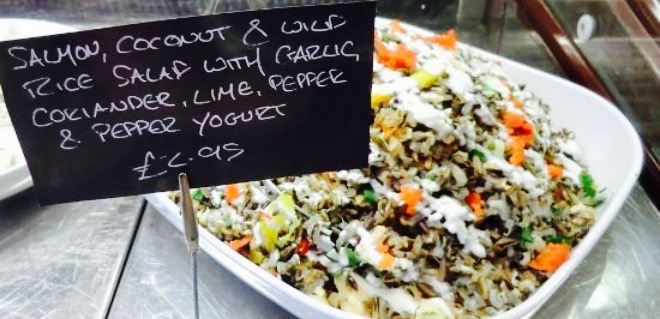 SALMON, COCONUT & WILD
RICE SALAD WITH GARLIC,
CORIANDER, LIME, PEPPER
& PEPPER YOGURT
£2.95